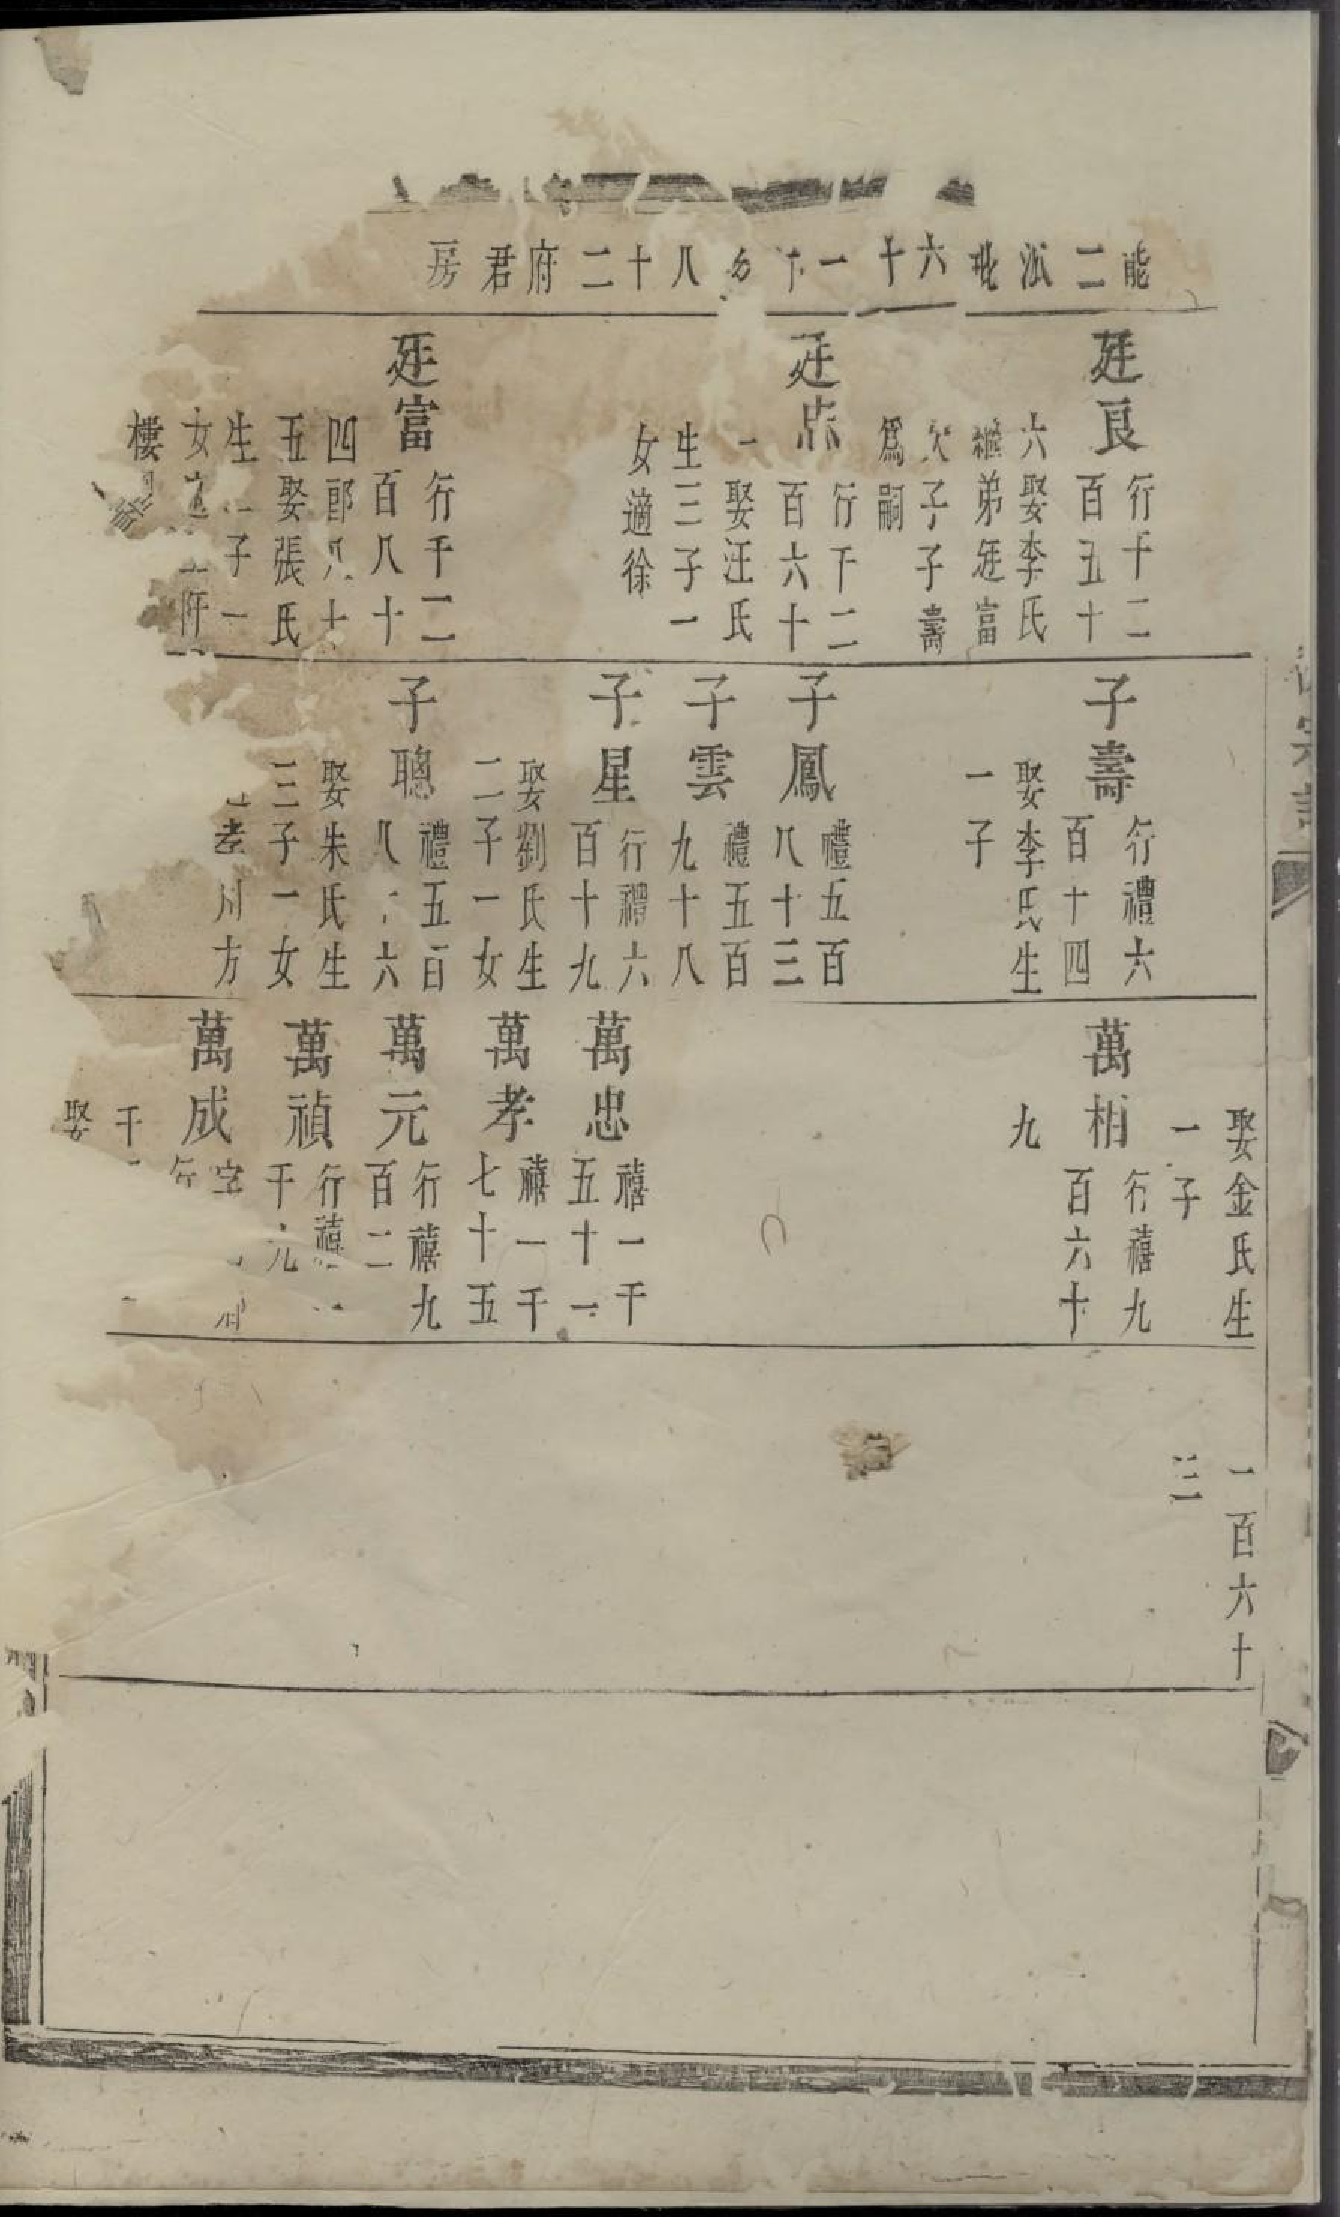 能二派批六十一下多八十二府君房
廷良
行千二
百五十
六娶李氏
繼弟廷富
次子子壽
為嗣
廷
行千二
百六十
一娶汪氏
生三子一
女適徐
廷富
行千二
百八十
四郎八十
五娶張氏
生一子一
女
樓
子壽
行禮六
百十四
娶李氏生
一子
子鳳
禮五百
八十三
子雲
禮五百
九十八
子星
行禮六
百十九
娶劉氏生
二子一女
子聰
禮五百
八十六
娶朱氏生
三子一女
孝川方
娶金氏生
一子
萬梢
行禧九
百六十
九
萬忠
禧一千
五十一
萬孝
禧一千
七十五
萬元
行禧九
百二
萬禎
行禧
千九
萬成
字
行
千
娶
一百六十
三